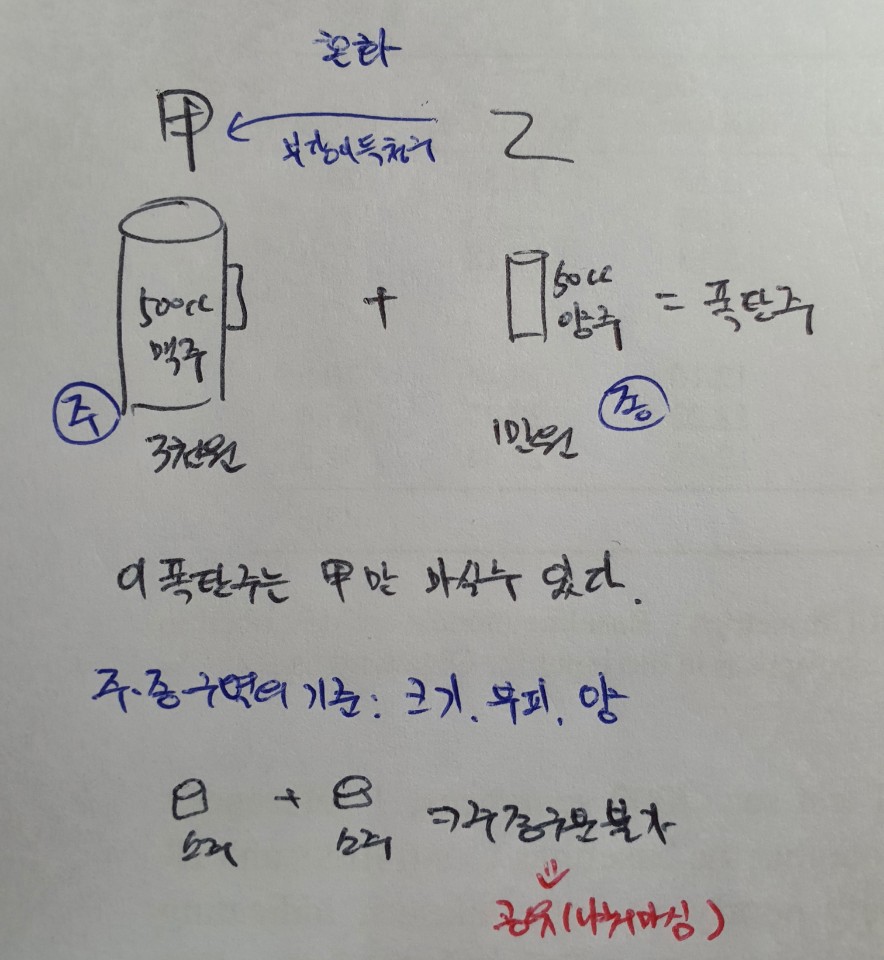 혼화
甲 ← 乙
부당이득청구
500cc 맥주 + 50cc 양주 = 폭탄주
주 종
3천원 1만원
이 폭탄주는 甲만 마실수 있다.
주·종 구별의 기준: 크기, 부피, 양
소주 + 소주 ⇒ 주종구분불가
공유(나눠마심)